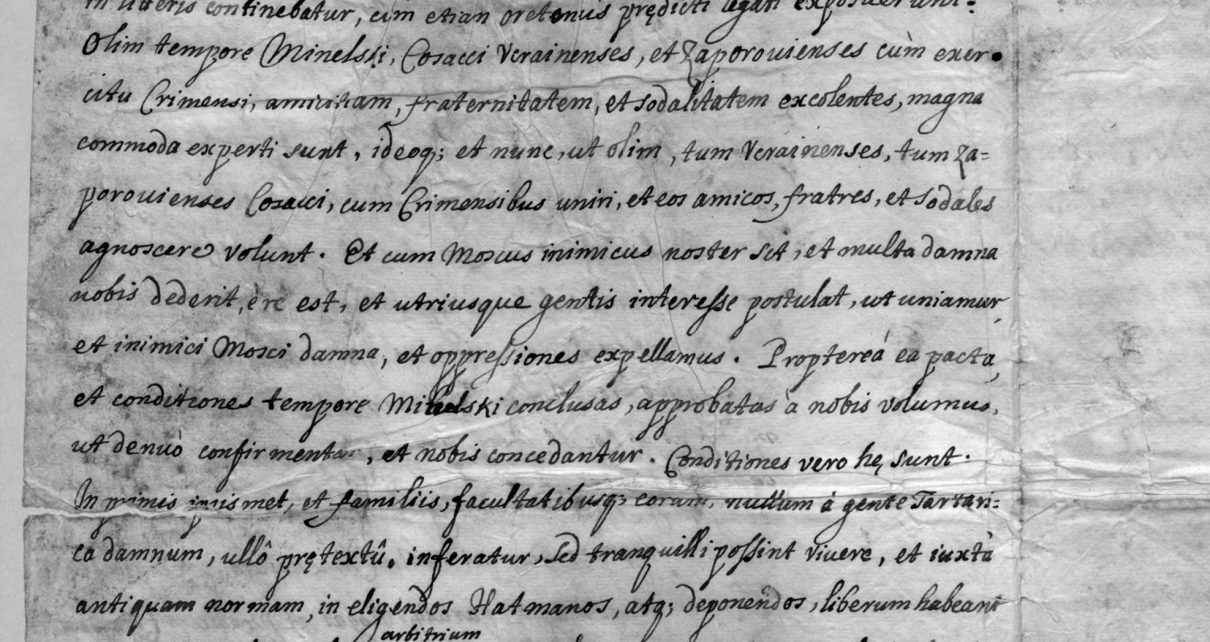 in litteris continebatur, cùm etiam oretenus prędicti legati exposuerunt.
Olim tempore Minelski, Cosacci Vcrainenses, et Zaporouienses cùm exer-
citu Crimensi, amicitiam, fraternitatem, et sodalitatem excolentes, magna
commoda experti sunt, ideoq; et nunc, ut olim, tum Vcrainenses, tum Za=
porouienses Cosacci, cum Crimensibus uniri, et eos amicos, fratres, et sodales
agnoscere volunt. Et cum Moscus inimicus noster sit, et multa damna
nobis dederit, è re est, et utriusque gentis interesse postulat, ut uniamur,
et inimici Mosci damna, et oppressiones expellamus. Proptereá ea pacta,
et conditiones tempore Mihelski conclusas, approbatas à nobis volumus,
ut denuò confirmentur, et nobis concedantur. Conditiones vero hę sunt.
In primis ipsismet, et familiis, facultatibusq; eorum, nullum á gente Tartari=
ca damnum, ullô prętextû, inferatur, sed tranquilli possint vivere, et iuxtà
antiquam normam, in eligendos Hatmanos, atq; deponendos, liberum habeant
arbitrium